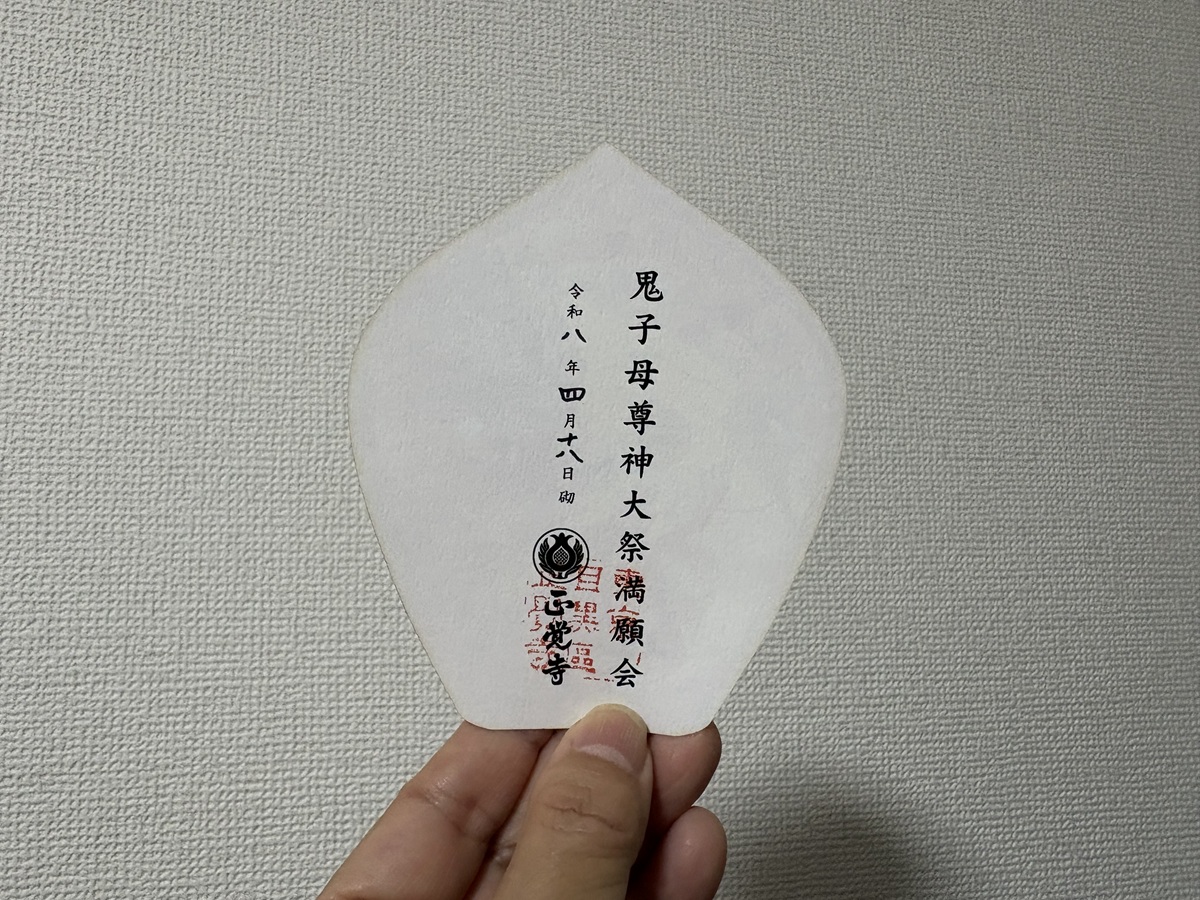 鬼子母尊神大祭満願会
令和八年四月十八日砌
正覚寺